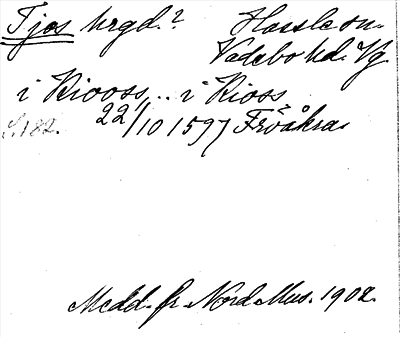 Tjos hrgd.? Hassle sn.
Vadsbo hd. Vg.
i Kiooss,.. i Kioss
S. 182. 22/10 1597 Fröåkra
Medd. fr. Nord. Mus. 1902.